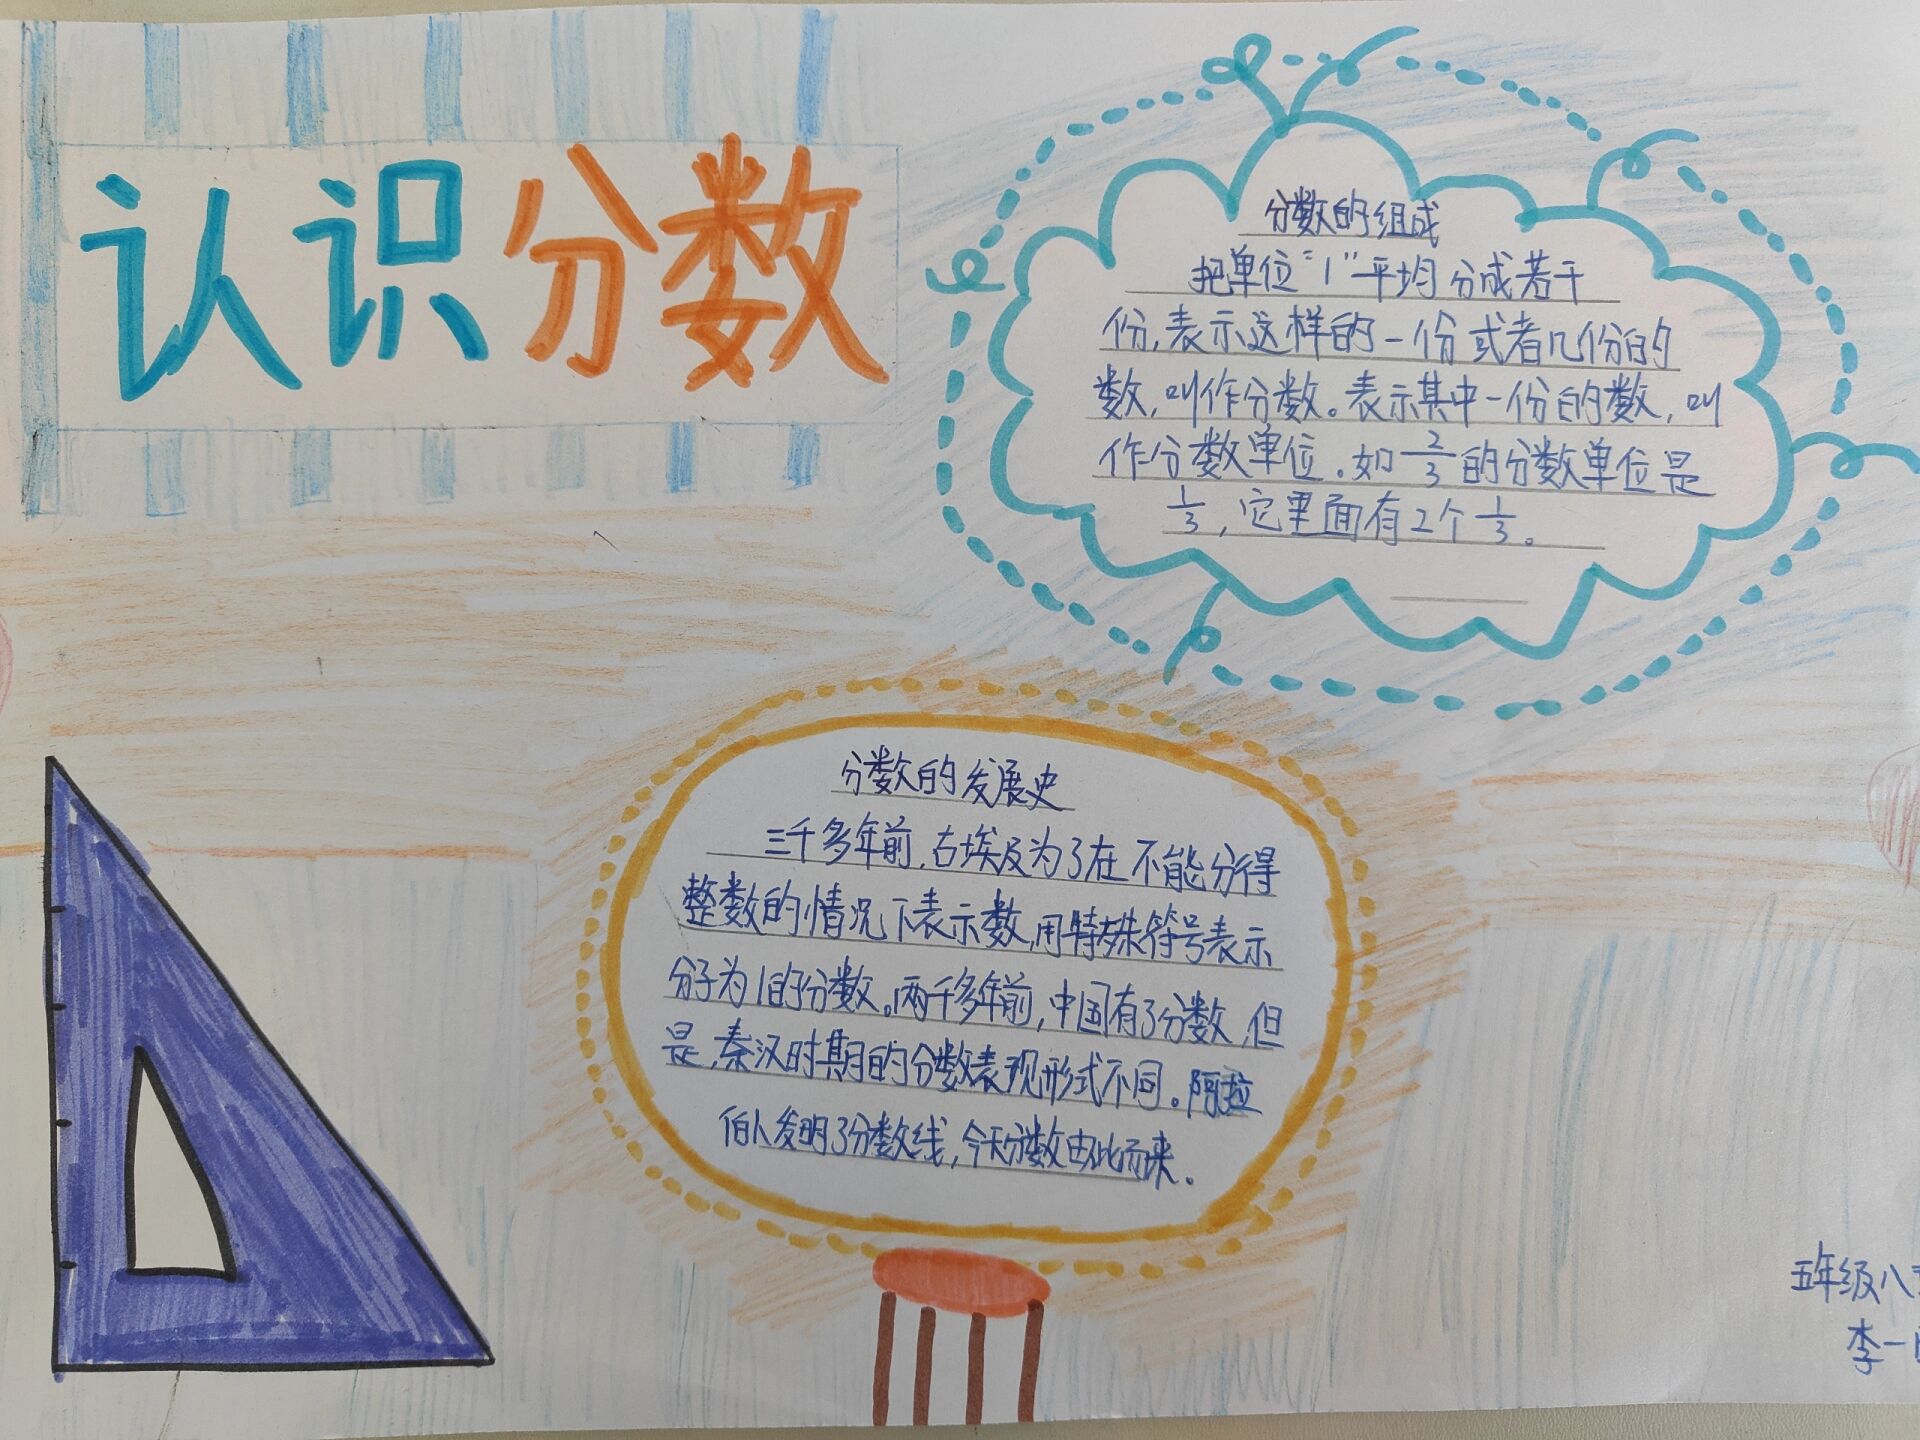 认识分数
分数的组成
把单位“1”平均分成若干
份,表示这样的一份或者几份的
数,叫作分数。表示其中一份的数,叫
作分数单位.如2/3的分数单位是
1/3,它里面有2个1/3。
分数的发展史
三千多年前,古埃及为了在不能分得
整数的情况下表示数,用特殊符号表示
分子为1的分数。两千多年前,中国有了分数,但
是,秦汉时期的分数表现形式不同。阿拉
伯人发明了分数线,今天分数由此而来。
五年级八
李一